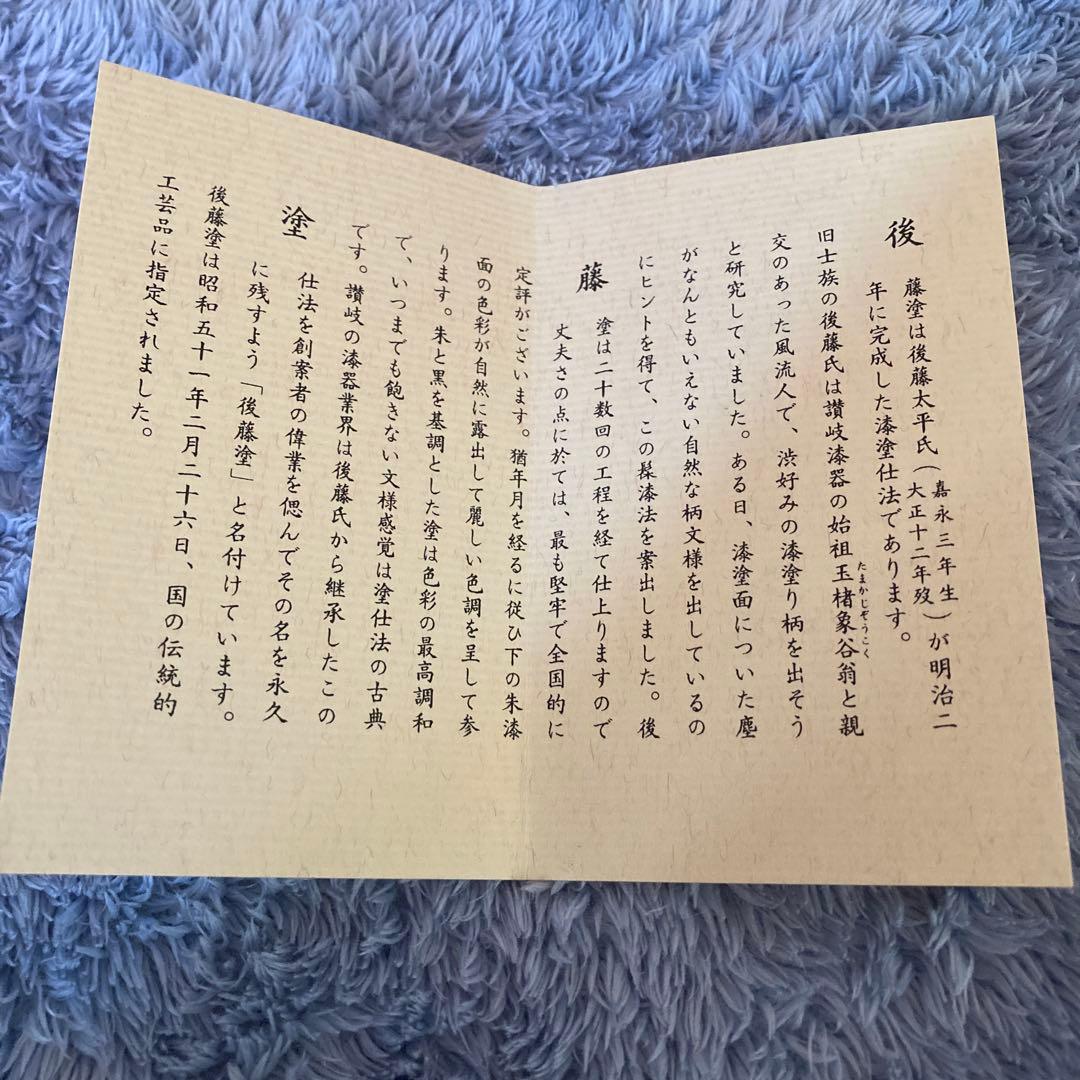 後藤塗は後藤太平氏(嘉永三年生 大正十二年歿)が明治二
年に完成した漆塗仕法であります。
旧士族の後藤氏は讃岐漆器の始祖玉楮象谷翁と親
たまかじぞうこく
交のあった風流人で、渋好みの漆塗り柄を出そう
と研究していました。ある日、漆塗面についた塵
がなんともいえない自然な柄文様を出しているの
にヒントを得て、この髹漆法を案出しました。後
藤塗は二十数回の工程を経て仕上りますので
丈夫さの点に於ては、最も堅牢で全国的に
定評がございます。猶年月を経るに従ひ下の朱漆
面の色彩が自然に露出して麗しい色調を呈して参
ります。朱と黒を基調とした塗は色彩の最高調和
で、いつまでも飽きない文様感覚は塗仕法の古典
です。讃岐の漆器業界は後藤氏から継承したこの
塗仕法を創案者の偉業を偲んでその名を永久
に残すよう「後藤塗」と名付けています。
後藤塗は昭和五十一年二月二十六日、国の伝統的
工芸品に指定されました。